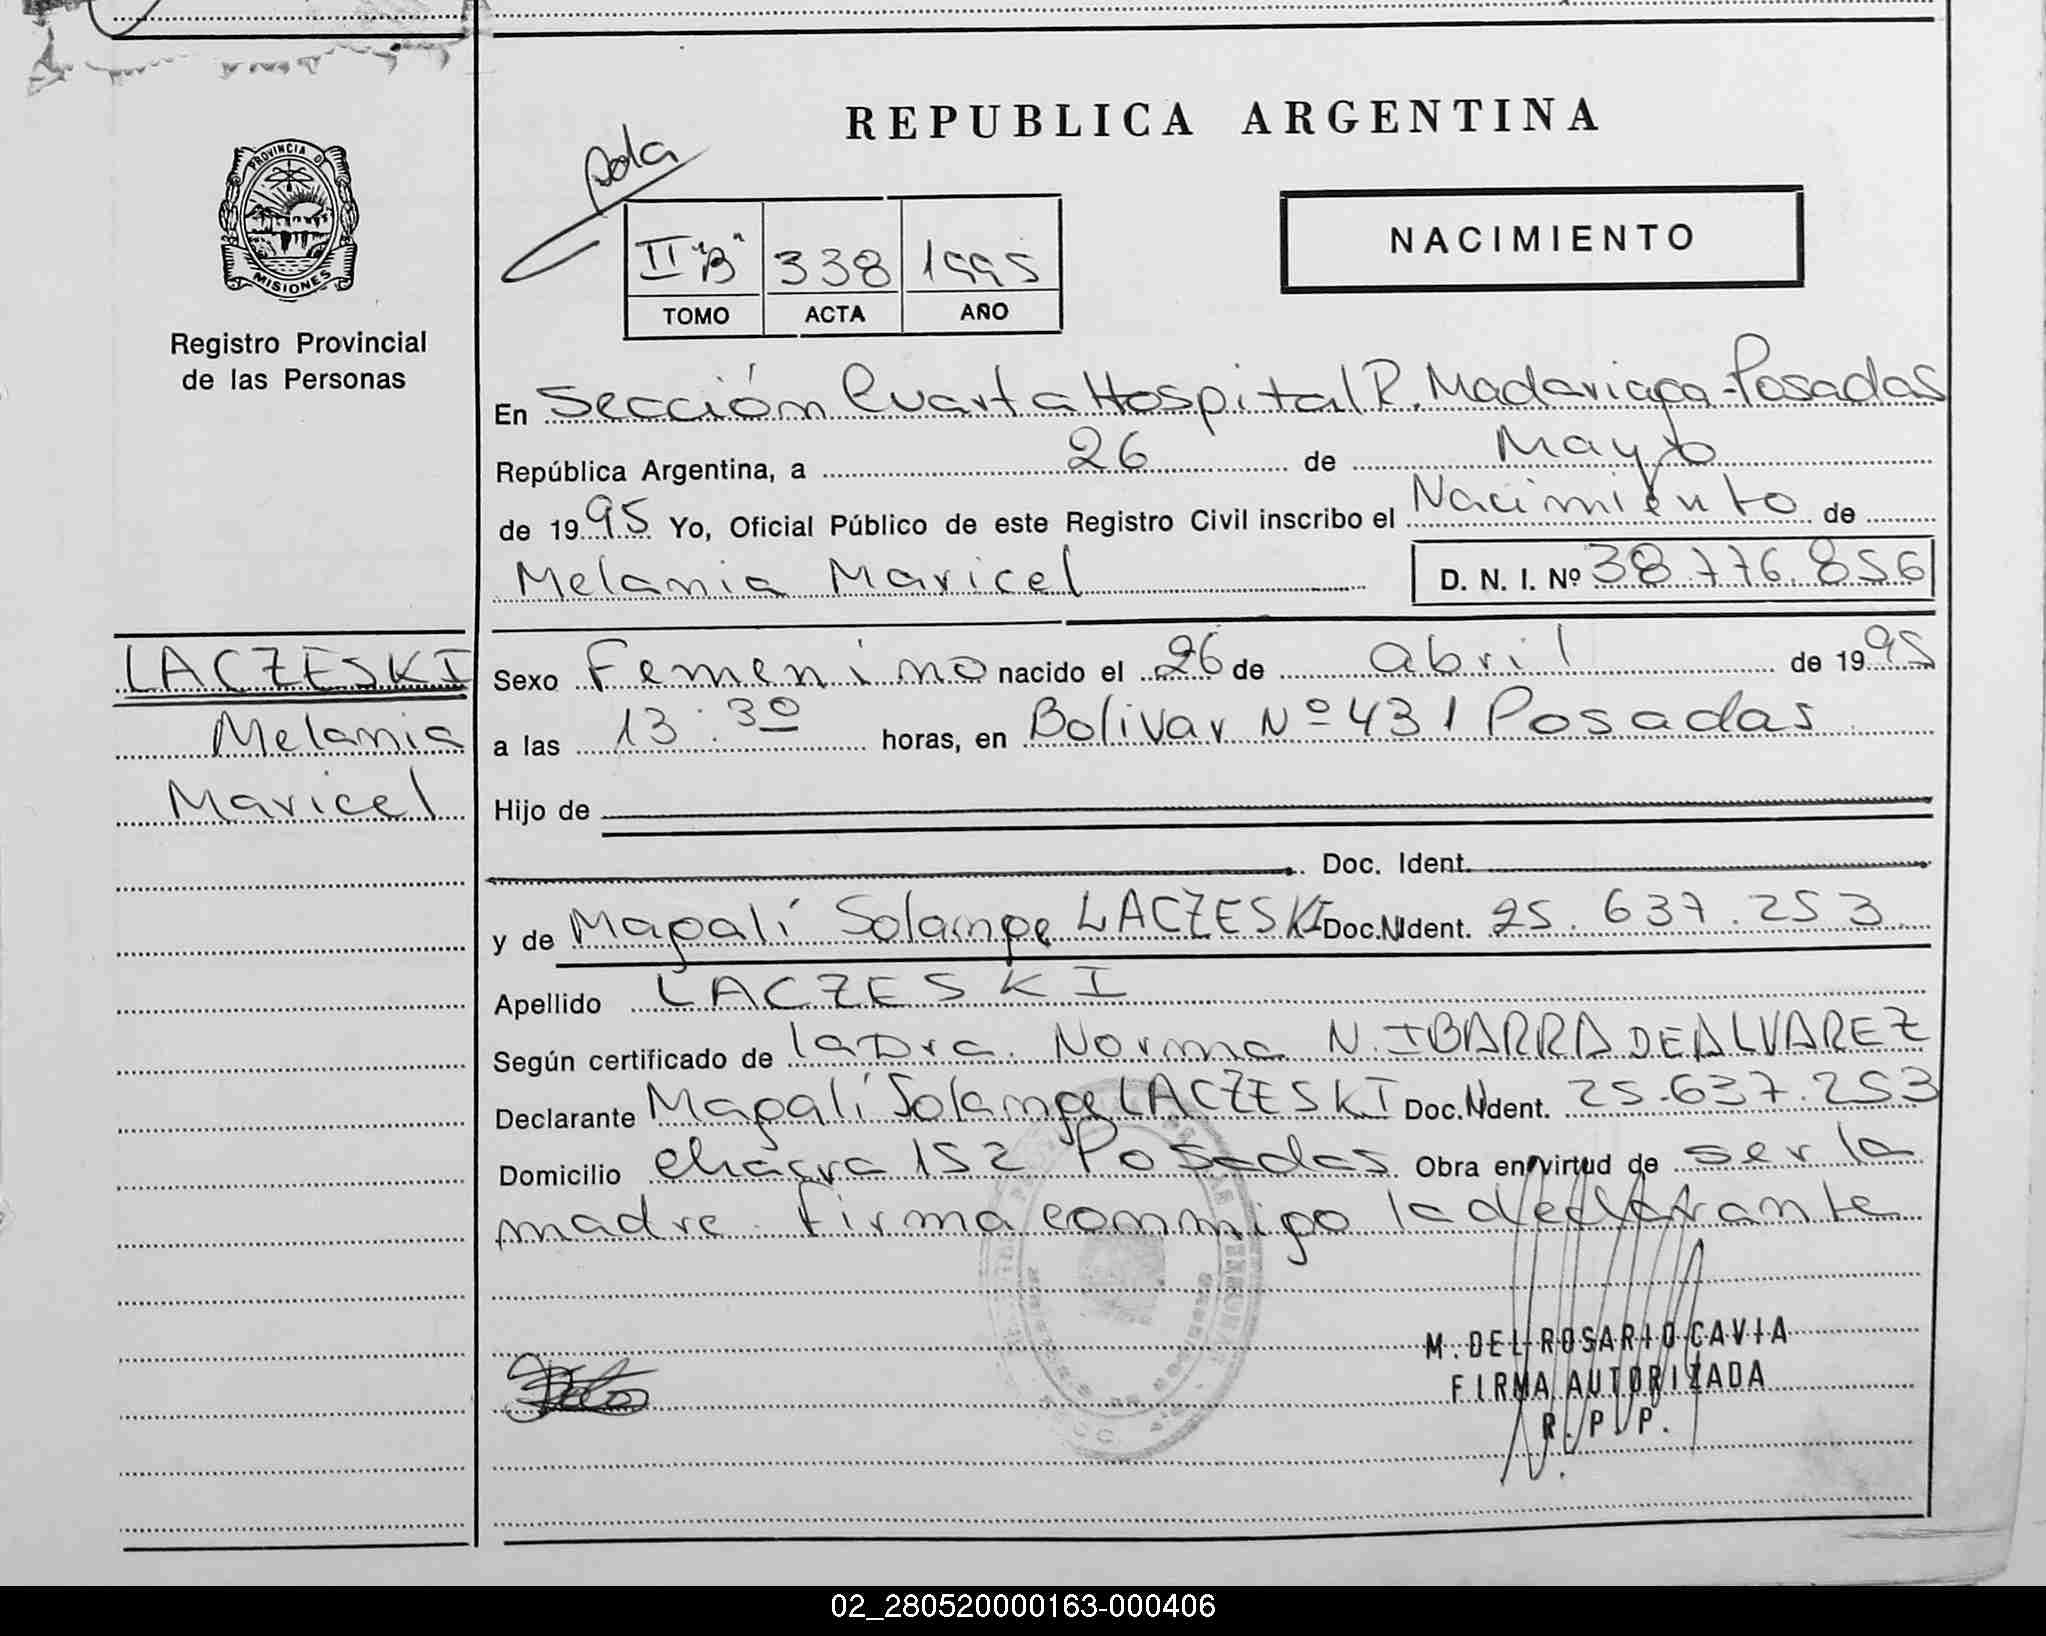 REPUBLICA ARGENTINA
PROVINCIA D
MISIONES
Registro Provincial
de las Personas
NACIMIENTO
II "B" 338 1995
TOMO ACTA AÑO
En Sección Cuarta Hospital R. Madariaga-Posadas
República Argentina, a 26 de Mayo
de 1995 Yo, Oficial Público de este Registro Civil inscribo el Nacimiento de
Melania Maricel D. N. I. Nº 38.776.856
LACZESKI
Melania
Maricel
Sexo Femenino nacido el 26 de abril de 1995
a las 13:30 horas, en Bolivar Nº 431 Posadas
Hijo de
Doc. Ident.
y de Magalí Solange LACZESKI Doc.N Ident. 25.637.253
Apellido LACZESKI
Según certificado de la Dra. Norma N. IBARRA DE ALVAREZ
Declarante Magalí Solange LACZESKI Doc.N Ident. 25.637.253
Domicilio chacra 152 Posadas Obra en virtud de ser la
madre. Firma conmigo la declarante
M. DEL ROSARIO CAVIA
FIRMA AUTORIZADA
R. P. P.
02_280520000163-000406